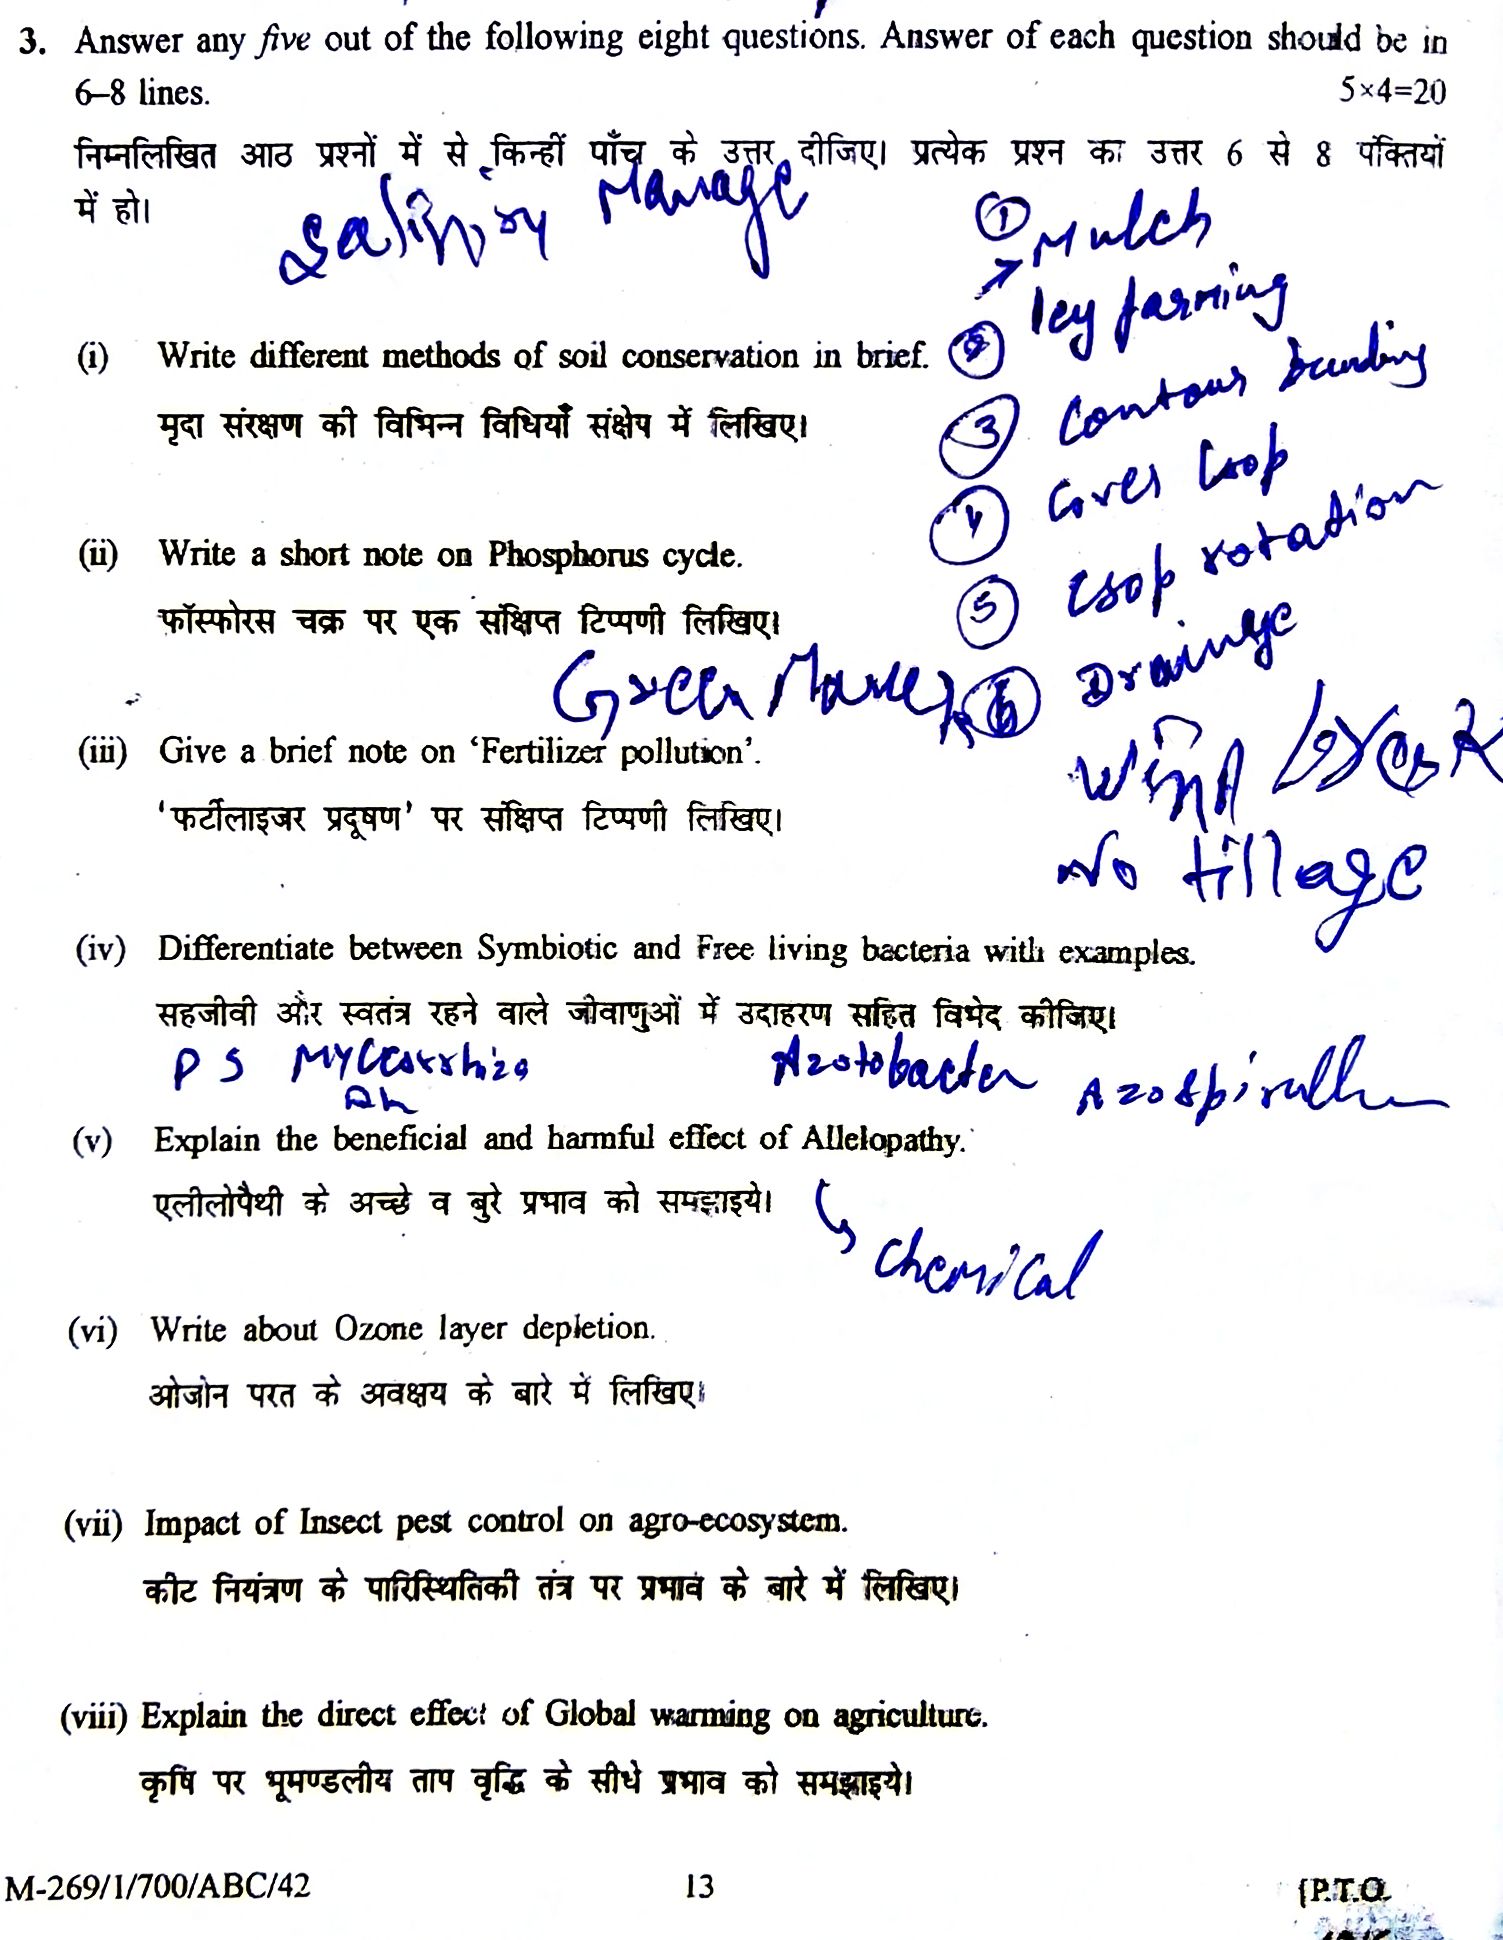 3. Answer any five out of the following eight questions. Answer of each question should be in
6–8 lines. 5×4=20
निम्नलिखित आठ प्रश्नों में से किन्हीं पाँच के उत्तर दीजिए। प्रत्येक प्रश्न का उत्तर 6 से 8 पंक्तियों
में हो।
Manage
① Mulch
ley farming
(i) Write different methods of soil conservation in brief. ②
मृदा संरक्षण की विभिन्न विधियाँ संक्षेप में लिखिए।
③ Contour bunding
④ Cover Crop
(ii) Write a short note on Phosphorus cycle.
फॉस्फोरस चक्र पर एक संक्षिप्त टिप्पणी लिखिए।
⑤ Crop rotation
⑥ Drainage
Green
(iii) Give a brief note on ‘Fertilizer pollution’.
‘फर्टीलाइजर प्रदूषण’ पर संक्षिप्त टिप्पणी लिखिए।
Wind break
No tillage
(iv) Differentiate between Symbiotic and Free living bacteria with examples.
सहजीवी और स्वतंत्र रहने वाले जीवाणुओं में उदाहरण सहित विभेद कीजिए।
P S Azotobacter
(v) Explain the beneficial and harmful effect of Allelopathy.
एलीलोपैथी के अच्छे व बुरे प्रभाव को समझाइये।
Chemical
(vi) Write about Ozone layer depletion.
ओजोन परत के अवक्षय के बारे में लिखिए।
(vii) Impact of Insect pest control on agro-ecosystem.
कीट नियंत्रण के पारिस्थितिकी तंत्र पर प्रभाव के बारे में लिखिए।
(viii) Explain the direct effect of Global warming on agriculture.
कृषि पर भूमण्डलीय ताप वृद्धि के सीधे प्रभाव को समझाइये।
M-269/1/700/ABC/42 13 [P.T.O.